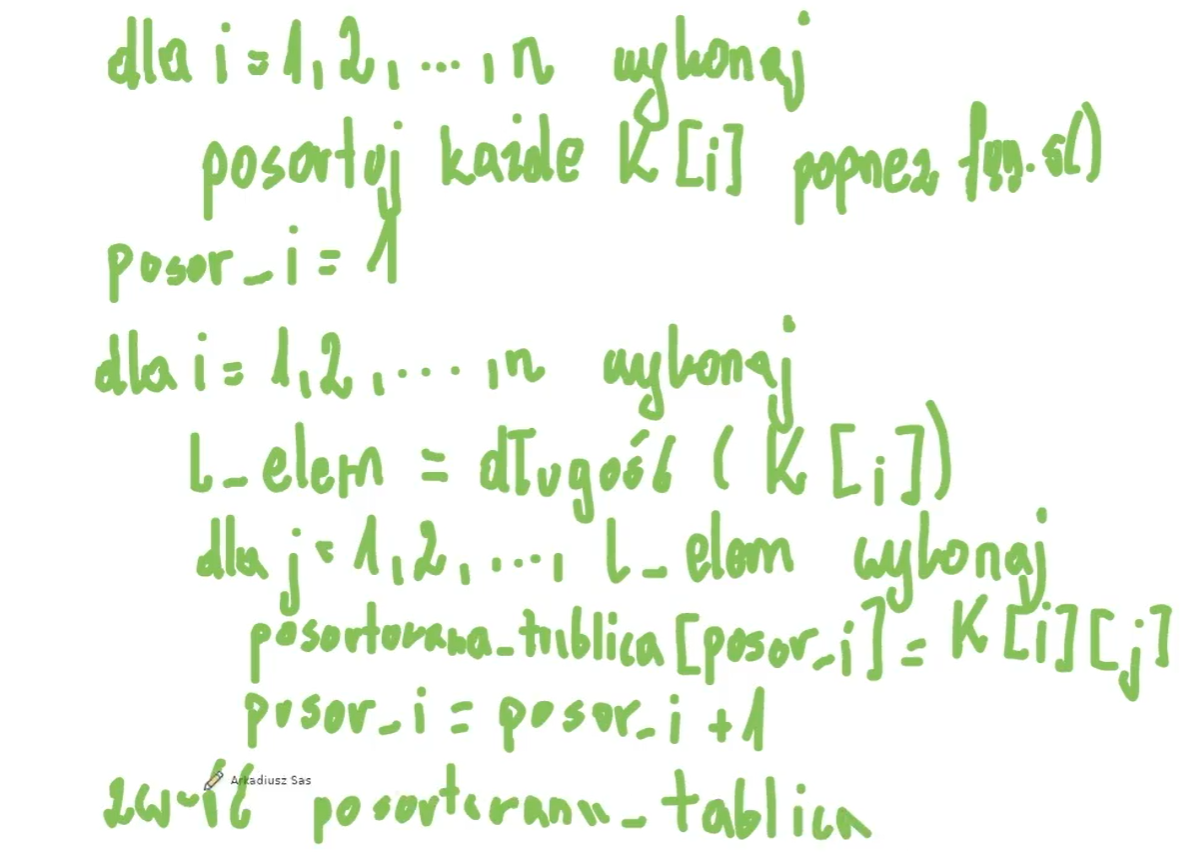 dla i = 1, 2, ..., n wykonaj
posortuj każde K[i] poprzez fun. s()
posor_i = 1
dla i = 1, 2, ..., n wykonaj
l_elem = długość (K[i])
dla j = 1, 2, ..., l_elem wykonaj
posortowana_tablica [posor_i] = K[i][j]
posor_i = posor_i + 1
Arkadiusz Sas
zwróć posortowana_tablica